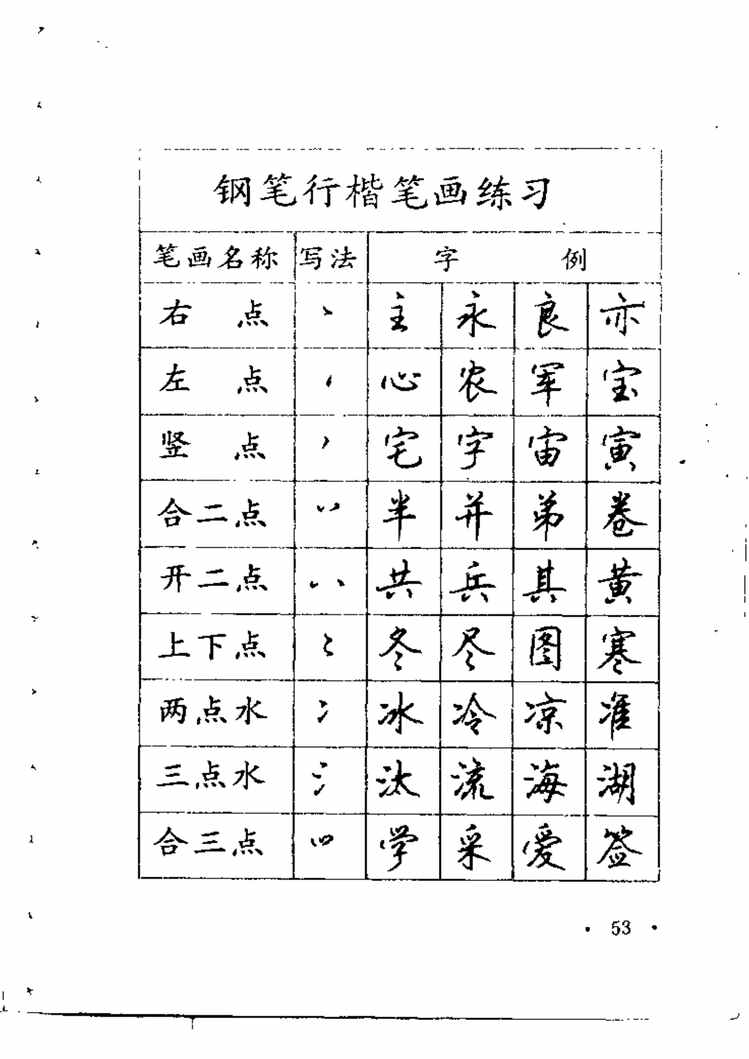 钢笔行楷笔画练习
笔画名称 写法 字 例
右 点 丶 主 永 良 亦
左 点 心 农 军 宝
竖 点 宅 字 宙 寅
合二点 半 并 弟 卷
开二点 共 兵 其 黄
上下点 冬 尽 图 寒
两点水 冫 冰 冷 凉 准
三点水 氵 汰 流 海 湖
合三点 学 采 爱 签
· 53 ·